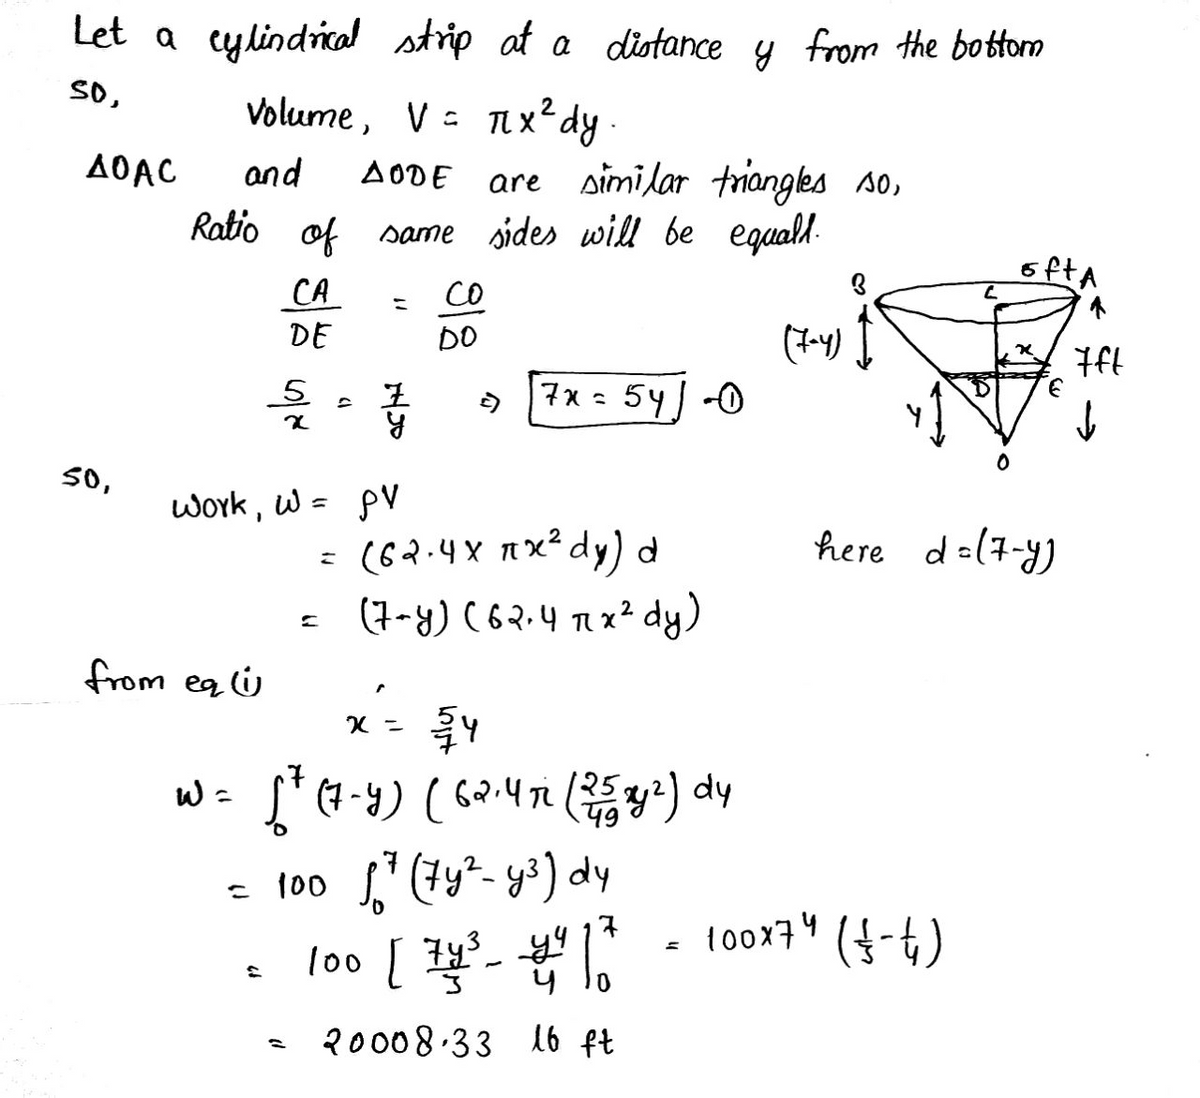 Let a cylindrical strip at a distance y from the bottom
so,
Volume, V = πx²dy.
ΔOAC and ΔODE are similar triangles so,
Ratio of same sides will be equall.
CA/DE = CO/DO
5/x = 7/y ⇒ 7x = 5y -①
5 ft A
B
C
(7-y)
x
7ft
D
E
y
O
so,
Work, W = ρV
= (62.4 x πx² dy) d here d = (7-y)
= (7-y) (62.4 πx² dy)
from eq (i)
x = 5/7 y
W = ∫₀⁷ (7-y) (62.4π (25/49 y²) dy
= 100 ∫₀⁷ (7y² - y³) dy
= 100 [ 7y³/3 - y⁴/4 |₀⁷ = 100x7⁴ (1/3 - 1/4)
= 20008.33 lb ft